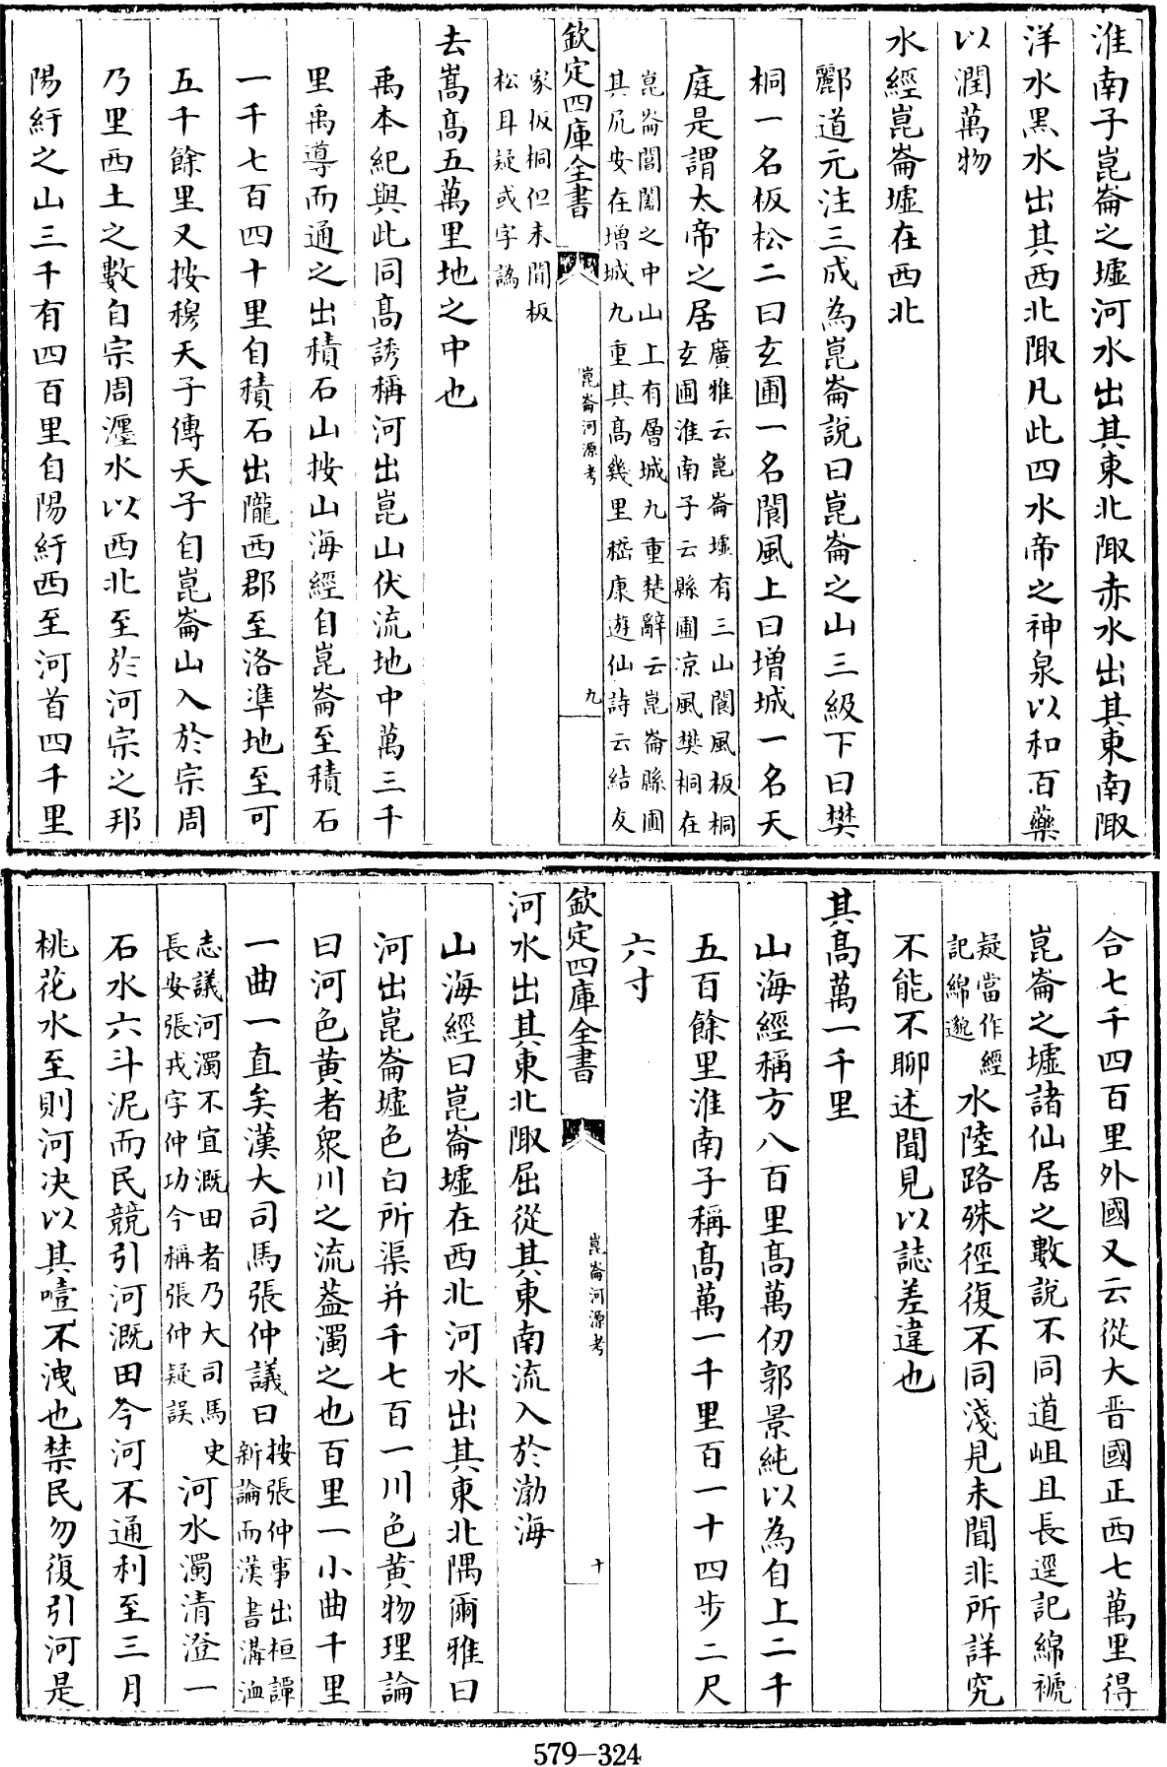 淮南子崑崙之墟河水出其東北陬赤水出其東南陬
洋水黒水出其西北陬凡此四水帝之神泉以和百藥
以潤萬物
水經崑崙墟在西北
酈道元注三成為崑崙説曰崑崙之山三級下曰樊
桐一名板松二曰玄圃一名閬風上曰增城一名天
庭是謂太帝之居
廣雅云崑崙墟有三山閬風板桐
玄圃淮南子云縣圃涼風樊桐在
崑崙閶闔之中山上有層城九重楚辭云崑崙縣圃
其凥安在增城九重其髙幾里嵇康遊仙詩云結友
欽定四庫全書
崑崙河源考
九
家板桐但未聞板
松耳疑或字譌
去嵩髙五萬里地之中也
禹本紀與此同髙誘稱河出崑山伏流地中萬三千
里禹導而通之出積石山按山海經自崑崙至積石
一千七百四十里自積石出隴西郡至洛準地至可
五千餘里又按穆天子傳天子自崑崙山入於宗周
乃里西土之數自宗周瀍水以西北至於河宗之邦
陽紆之山三千有四百里自陽紆西至河首四千里
合七千四百里外國又云從大晋國正西七萬里得
崑崙之墟諸仙居之數説不同道岨且長逕記綿褫
疑當作經
記綿邈
水陸路殊徑復不同淺見末聞非所詳究
不能不聊述聞見以誌差違也
其髙萬一千里
山海經稱方八百里髙萬仞郭景純以為自上二千
五百餘里淮南子稱髙萬一千里百一十四步二尺
六寸
欽定四庫全書
崑崙河源考
十
河水出其東北陬屈從其東南流入於渤海
山海經曰崑崙墟在西北河水出其東北隅爾雅曰
河出崑崙墟色白所渠并千七百一川色黄物理論
曰河色黄者衆川之流葢濁之也百里一小曲千里
一曲一直矣漢大司馬張仲議曰
按張仲事出桓譚
新論而漢書溝洫
志議河濁不宜溉田者乃大司馬史
長安張戎字仲功今稱張仲疑誤
河水濁清澄一
石水六斗泥而民競引河溉田今河不通利至三月
桃花水至則河决以其噎不洩也禁民勿復引河是
579-324